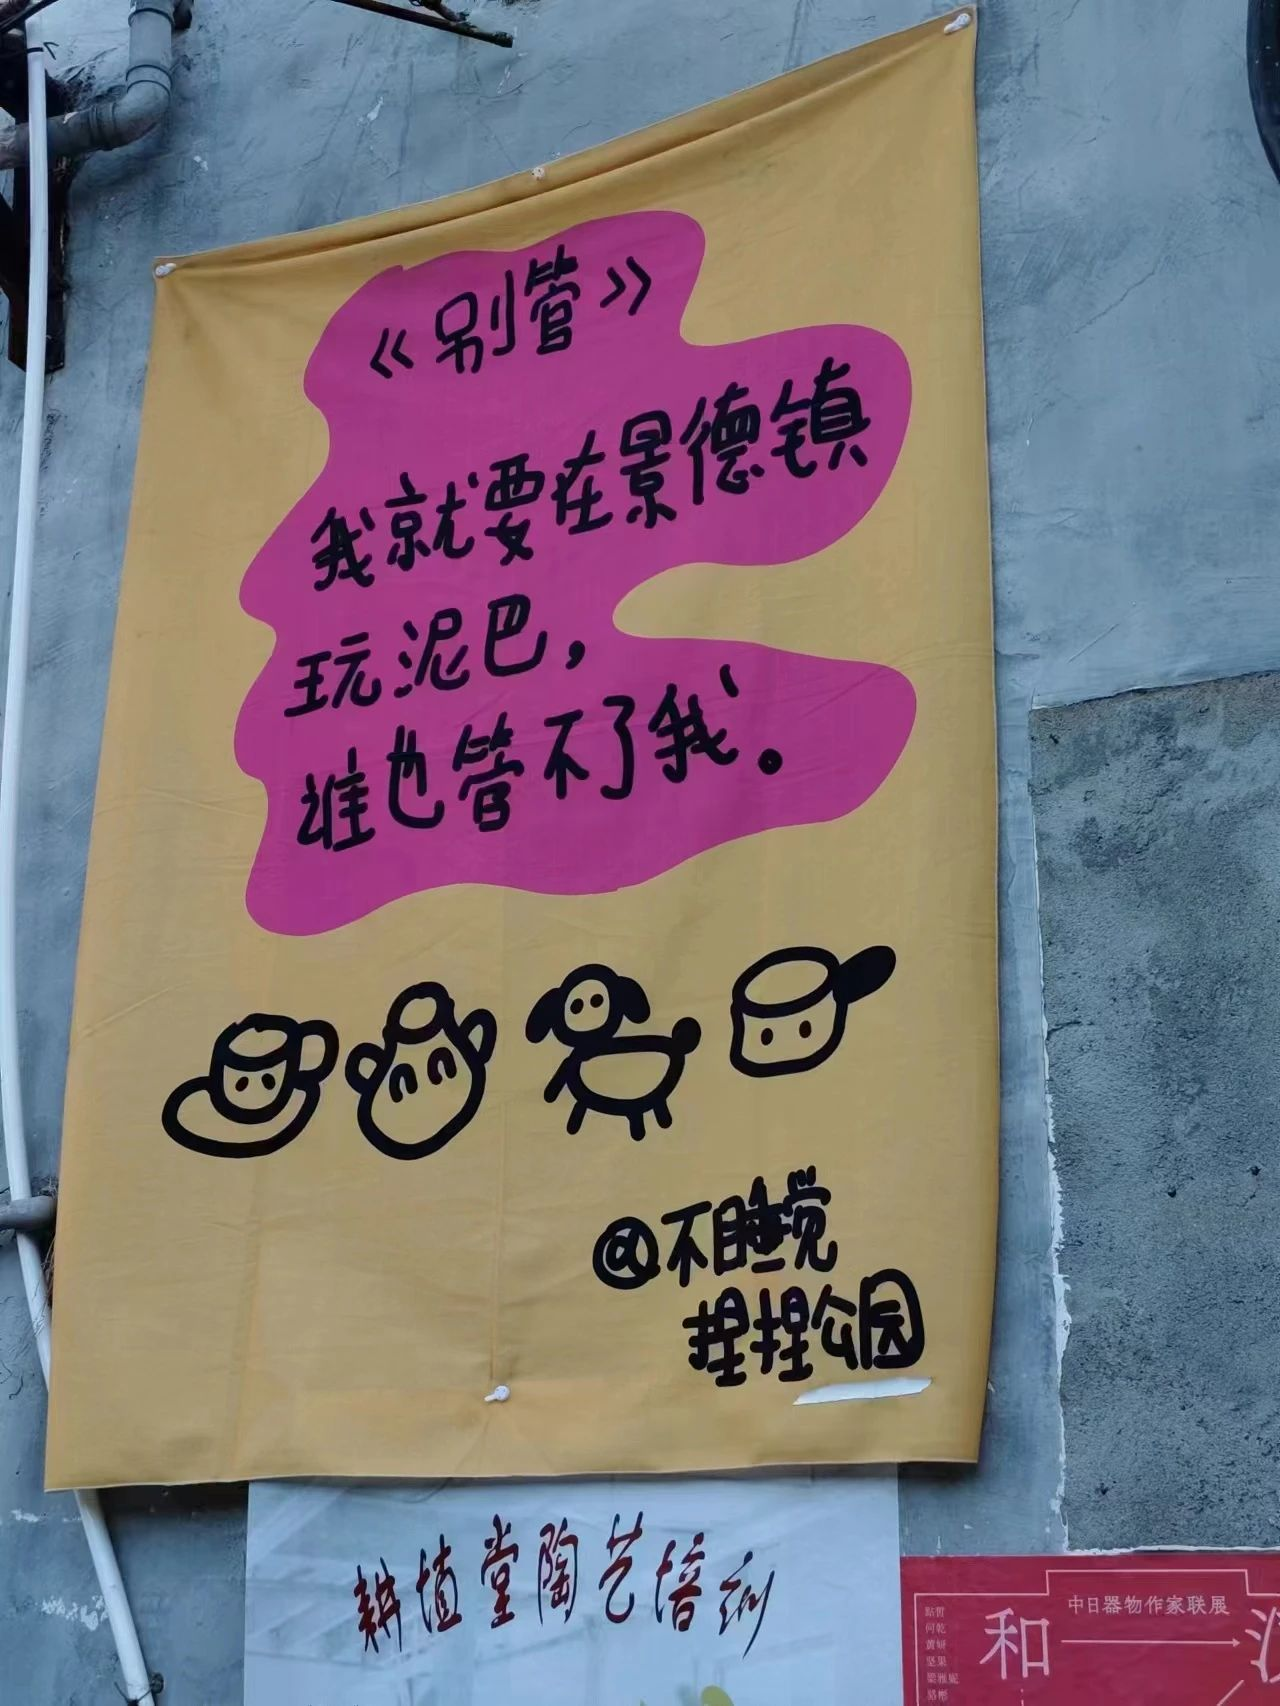 《别管》
我就要在景德镇
玩泥巴，
谁也管不了我。
@不睡觉
捏捏公园
耕埴堂陶艺培训
中日器物作家联展
和
點哲
何乾
黄妍
坚果